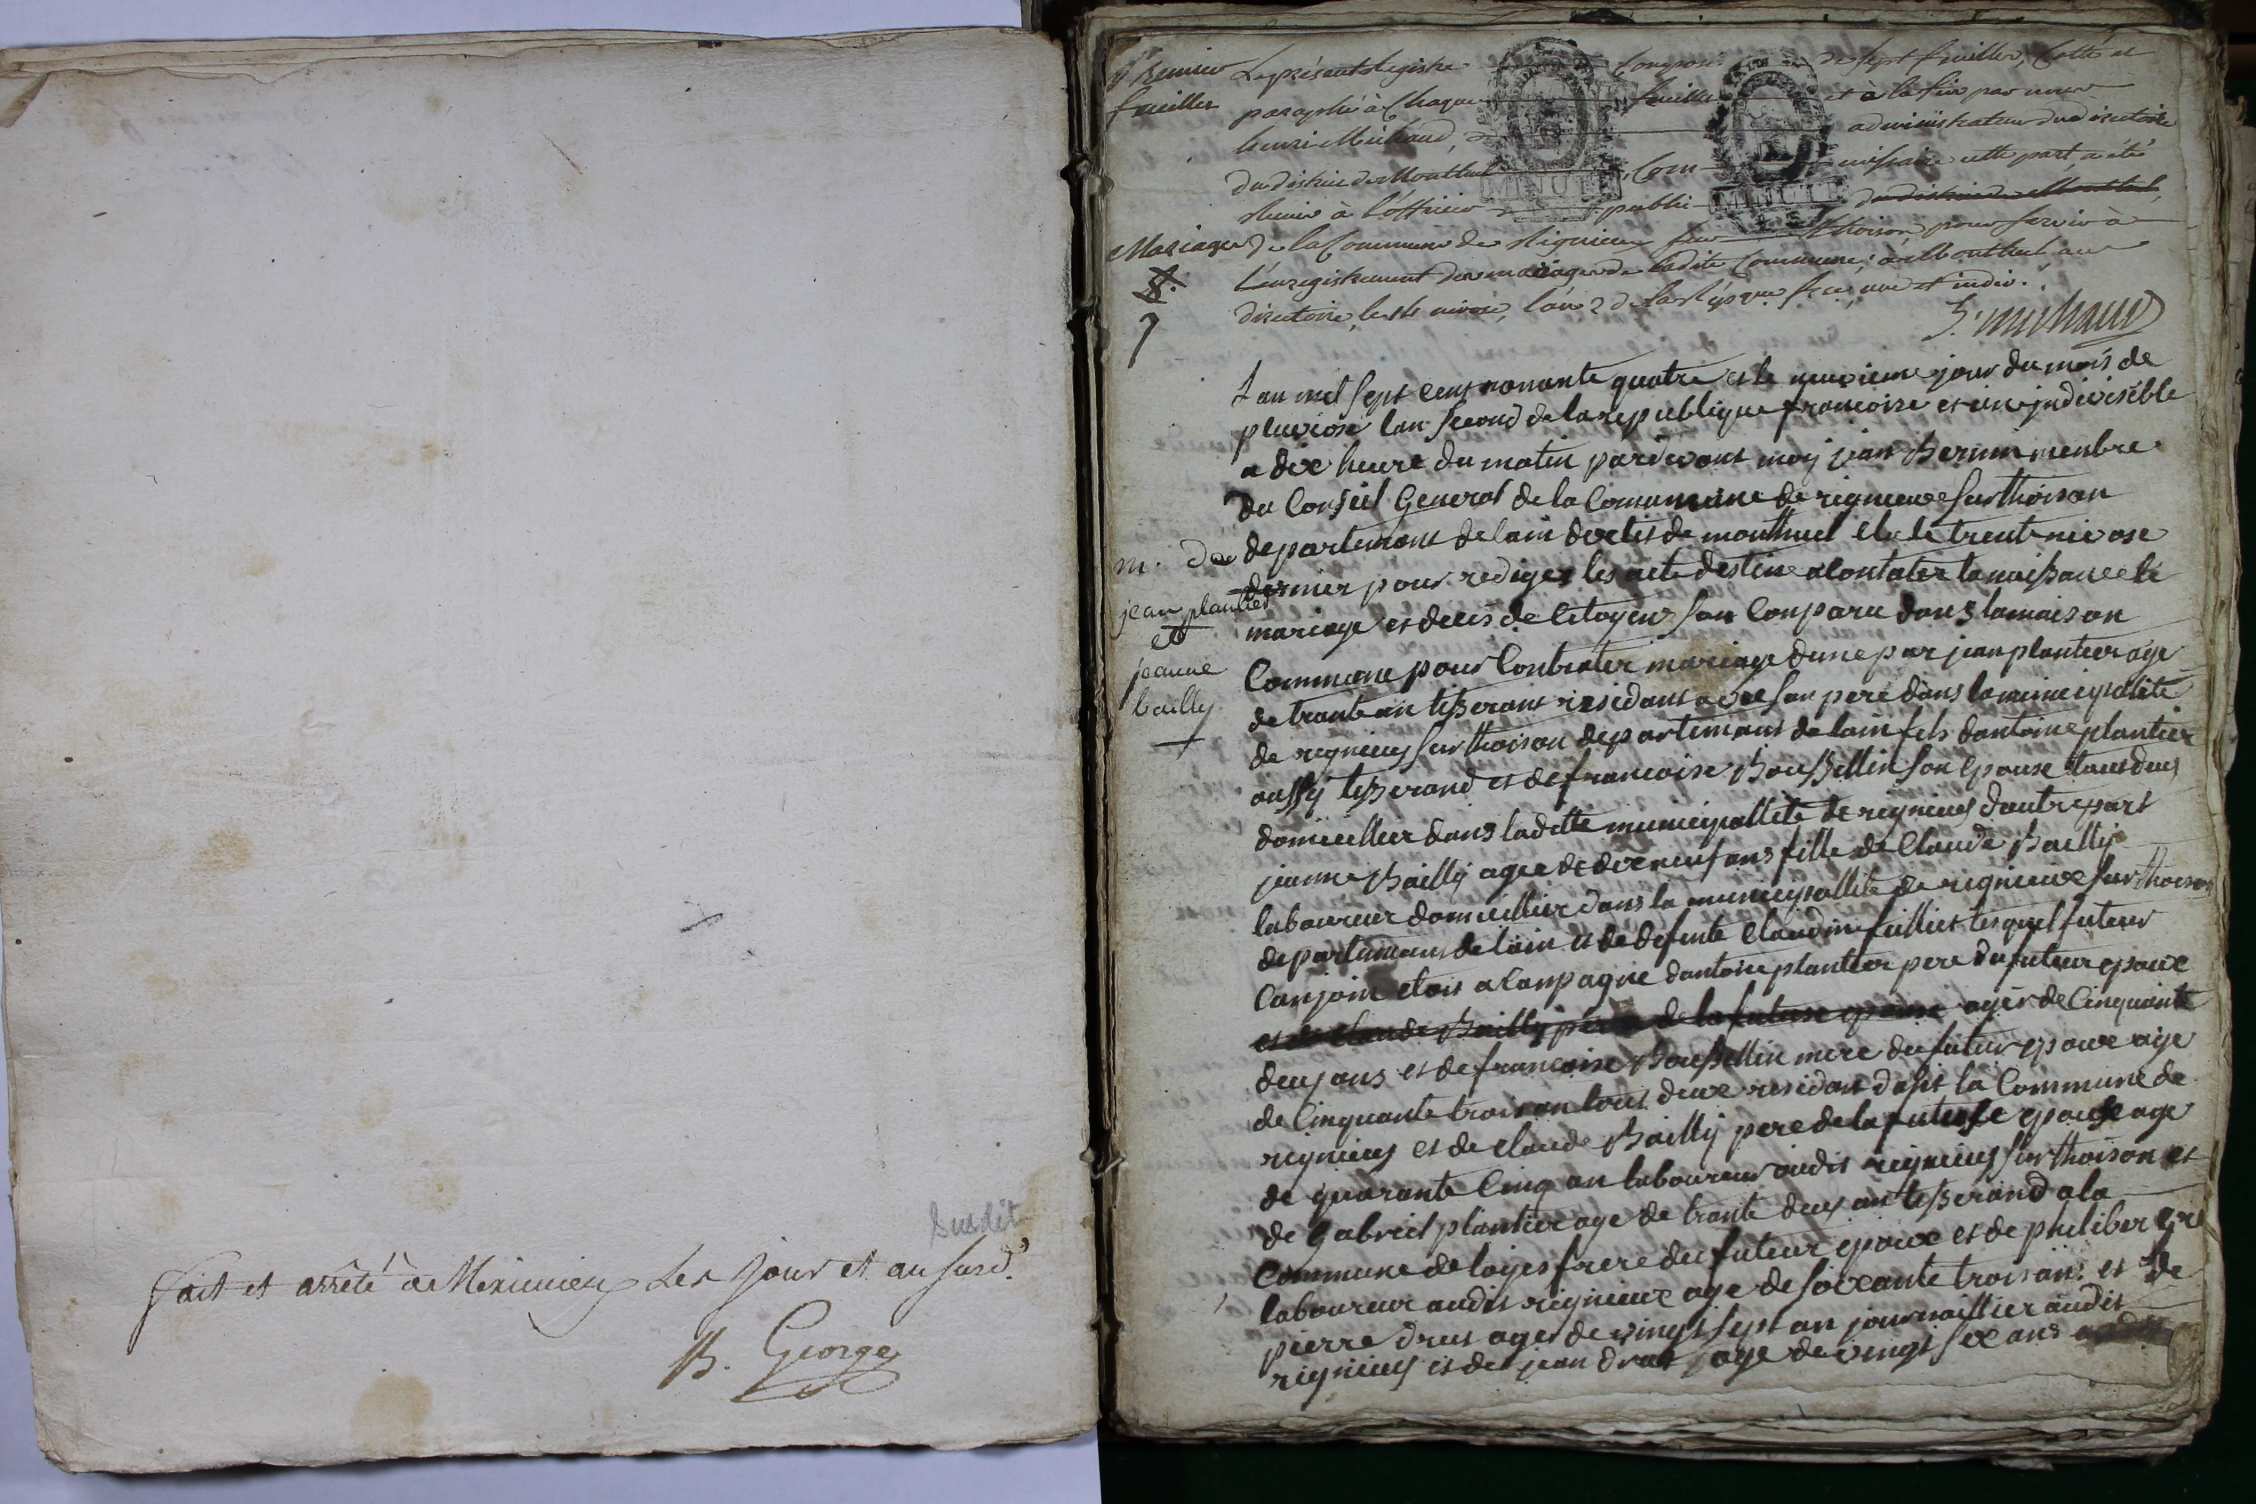 Susdit
fait et arrêté à Meximieux les jour et an susd.
B. George
premier
feuillet
Le présent Registre composé de sept feuillets, Cotté et
paraphé à Chaque feuillet et à la fin par nous
henri Michaud, administrateur du directoire
du district de Montluel, Commissaire cette part, a été
remis à l'officier public du district de Montluel,
de la Commune de Rignieux sur thoison, pour servir à
l'enregistrement des mariages de ladite Commune; à Montluel au
directoire, le 14 nivose, l'an 2 de la Rép.que fr.ce une et indiv.
h. michaud
Mariages
8.
7
m. de
jean plantier
et
jeanne
bailly
Lan mil sept cent nonante quatre et le neuvieme jour du mois de
pluviose lan second de la republique francoise et une jndivisible
a dix heure du matin pardevant moy jean Bernin menbre
du Conseil General de la Comumune de rignieux sur thoison
departemant de lain dictis de montluel elu le trente nivose
dernier pour rediger les acte destine a Contater la naissance le
mariage et deces de Citoyens son Conparu dans la maison
Commune pour Contrater mariage dune par jean plantier age
de trante an tisserant residant avec son pere dans la municipalite
de rignieus sur thoison departemant de lain fils dantoine plantier
aussy tisserand et de francoise Bousselin son epouse tous deus
domicillier dans ladite municipallite de rignieus dautre part
jeanne Bailly agee de dix neuf ans fille de Claude Bailly
laboureur domicillier dans la municipallite de rignieux sur thoison
departemans de lain et de defunte Claudine les quel futeur
Conjoin etois aConpagne dantoine plantier pere du futeur epoux
et de Claude Bailly pere de la future epouse ager de Cinquante
deus ans et de francoise Bousselin mere du futur epoux age
de Cinquante trois an tous deux residant dasit la Commune de
rignieus et de Claude Bailly pere de la futeuse epouse age
de quarante Cinq an laboureur audit rignieus sur thoison et
de gabriel plantier age de trante deus an tisserand a la
Commune de loyes frere du futeur epoux et de philiber
laboureur audit rignieux age de soixante trois an et de
pierre drus ager de vingt sept an journaillier audit
rignieus et de jean drus age de vingt six ans